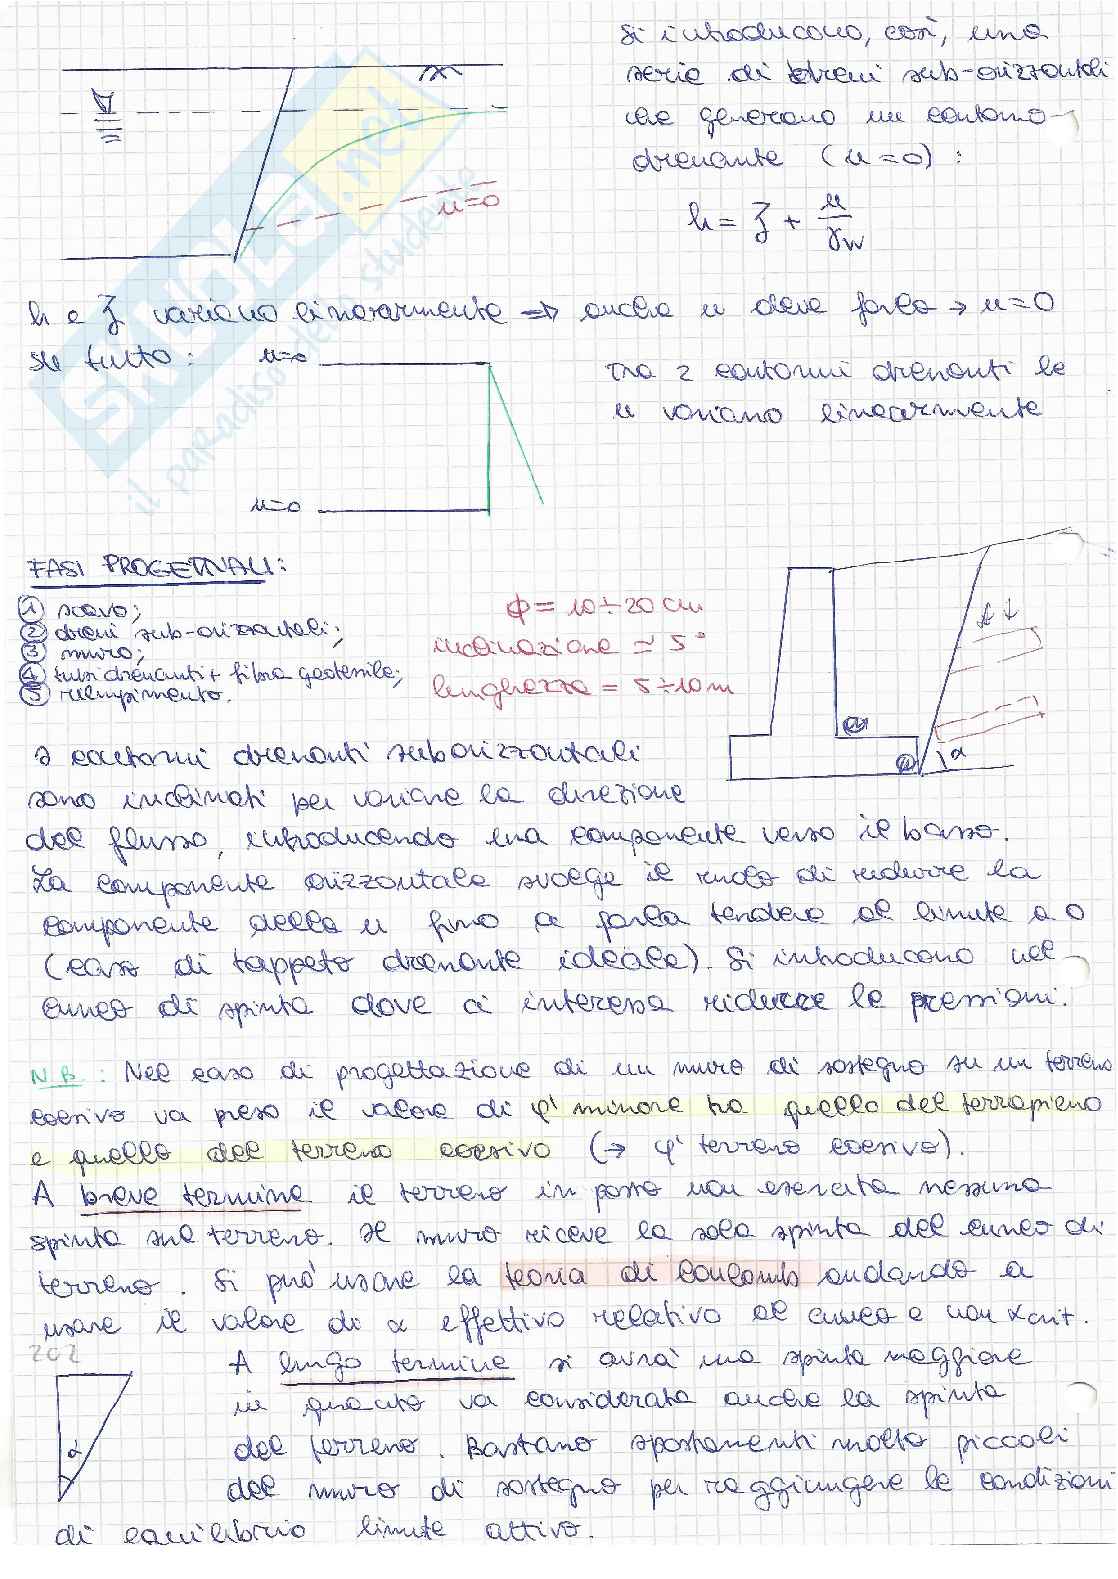 Si introducono, così, una
serie di dreni sub-orizzontali
che generano un contorno
drenante (u=0):
u=0
h = ζ + u/γw
h e ζ variano linearmente => anche u deve farlo → u=0
su tutto:
u=0
Tra 2 contorni drenanti le
u variano linearmente
u=0
FASI PROGETTUALI:
① scavo;
② dreni sub-orizzontali;
③ muro;
④ tubi drenanti + fibra geotessile;
⑤ riempimento.
φ = 10÷20 cm
inclinazione ≃ 5°
lunghezza = 5÷10m
α
I contorni drenanti suborizzontali
sono inclinati per variare la direzione
del flusso, introducendo una componente verso il basso.
La componente orizzontale svolge il ruolo di ridurre la
componente della u fino a farla tendere al limite a 0
(caso di tappeto drenante ideale). Si introducono nel
cuneo di spinta dove ci interessa ridurre le pressioni.
N.B.: Nel caso di progettazione di un muro di sostegno su un terreno
coesivo va preso il valore di φ' minore tra quello del terrapieno
e quello del terreno coesivo (→ φ' terreno coesivo).
A breve termine il terreno in posto non esercita nessuna
spinta sul terreno. Il muro riceve la sola spinta del cuneo di
terreno. Si può usare la teoria di Coulomb andando a
usare il valore di α effettivo relativo al cuneo e non αcrit.
202
A lungo termine si avrà una spinta maggiore
in quanto va considerata anche la spinta
del terreno. Bastano spostamenti molto piccoli
del muro di sostegno per raggiungere le condizioni
di equilibrio limite attivo.
α
SKUOLA.net
il paradiso dello studente